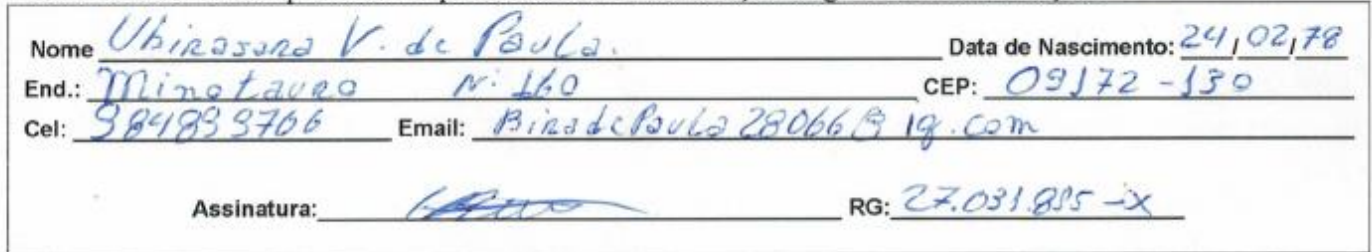 Nome Ubirasara V. de Paula. Data de Nascimento: 24/02/78
End.: Minotauro N: 160 CEP: 09172-130
Cel: 984899766 Email: BiradePaula28066@ig.com
Assinatura: RG: 27.031.855-X